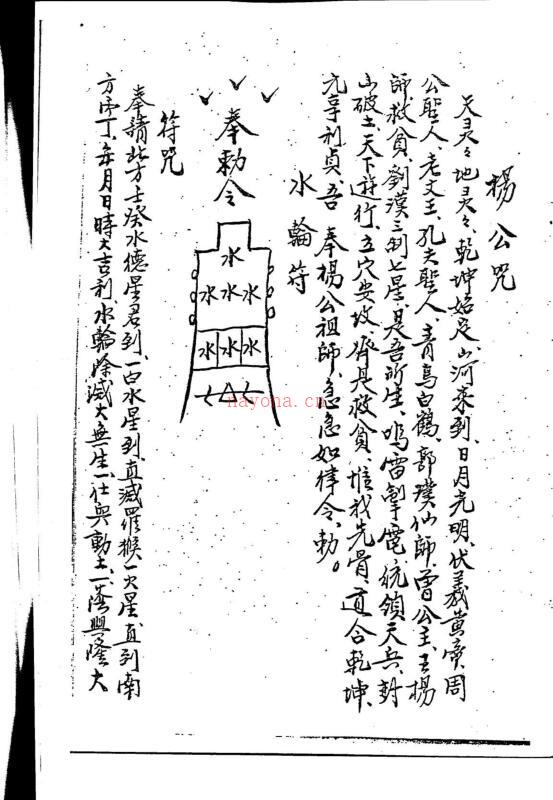 楊公咒
天灵々地灵々、乾坤始定、山河來到、日月光明、伏羲黄帝周
公聖人、老文王、孔夫聖人、青鳥白鶴、郭璞仙師、曾公主、王楊
師救貧、劉漢三制七星、是吾所生、鳴雷掣電、統領天兵、封
山破土、天下遊行、立穴安坟、濟是救貧、惟我先骨、道合乾坤、
元亨利貞、吾奉楊公祖師、急急如律令、勅。
水輪符
奉勅令
水
水水水
水水水
符咒
奉請北方壬癸水德星君到、一白水星到、直滅羅猴一火星、直到南
方丙丁、年月日時大吉利、水輪除滅火無生、一任興動土、一落興隆大
nayona.cn